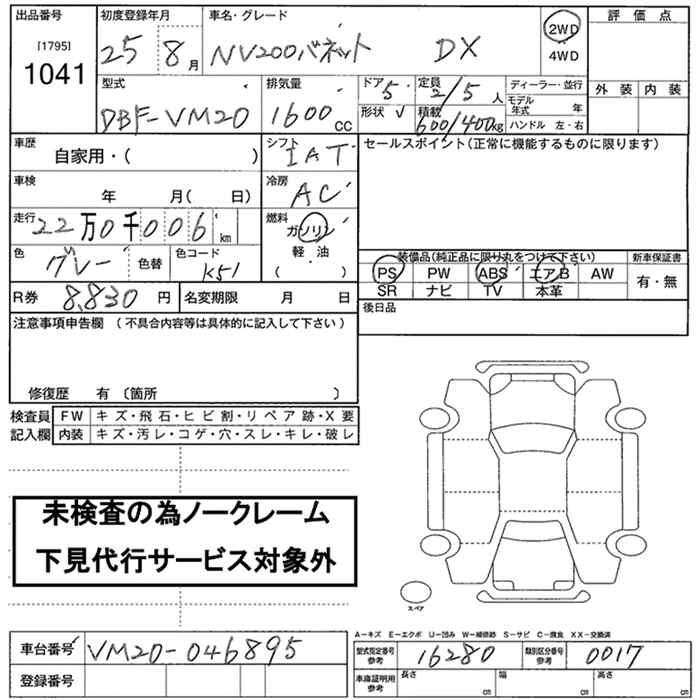 出品番号 初度登録年月 車名・グレード 評価点
[1795]
1041
25 8月 NV200バネット DX 2WD
4WD
型式 排気量 ドア 5 定員 2/5人 ディーラー・並行 外装 内装
DBF-VM20 1600cc 形状 V 積載 600/400kg モデル年式 年
ハンドル 左・右
車歴 シフト セールスポイント(正常に機能するものに限ります)
自家用・( ) IAT
車検 冷房
年 月( 日) AC
走行 22万0千006km 燃料
ガソリン
軽油
( ・ )
色 グレー 色替 色コード K51
装備品(純正品に限り丸をつけて下さい) 新車保証書
PS PW ABS エアB AW 有・無
SR ナビ TV 本革
R券 8,830円 名変期限 月 日 後日品
注意事項申告欄 (不具合内容等は具体的に記入して下さい)
修復歴 有 〔箇所 〕
検査員 FW キズ・飛石・ヒビ割・リペア跡・X要
記入欄 内装 キズ・汚レ・コゲ・穴・スレ・キレ・破レ
未検査の為ノークレーム
下見代行サービス対象外
スペア
A−キズ E−エクボ U−凹み W−補修跡 S−サビ C−腐食 XX−交換済
車台番号 VM20-046895 型式指定番号 参考 16280 類別区分番号 参考 0017
登録番号 車庫証明用 参考 長さ cm 幅 cm 高さ cm